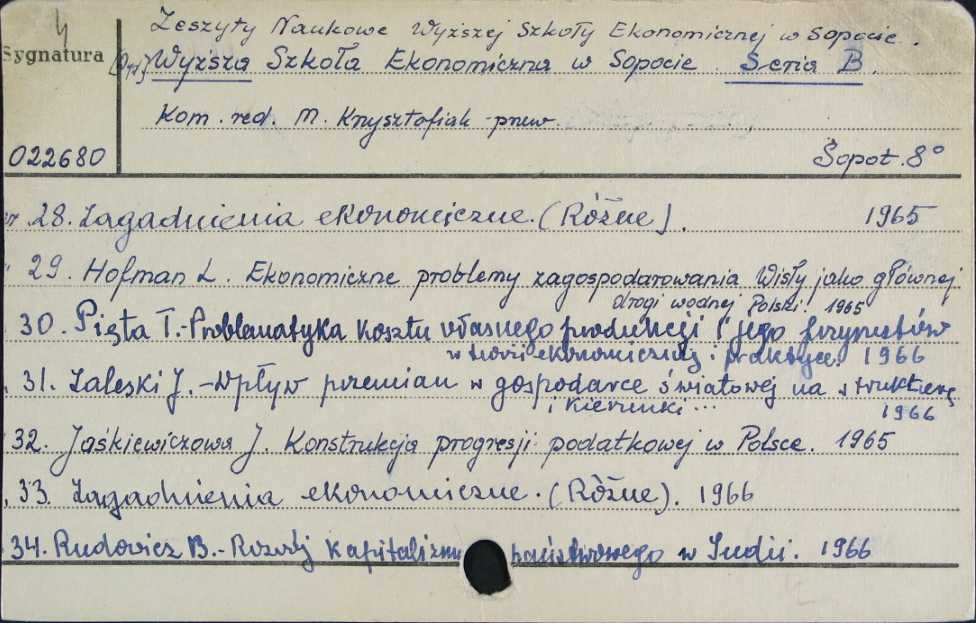 4
Zeszyty Naukowe Wyższej Szkoły Ekonomicznej w Sopocie.
Sygnatura
Wyższa Szkoła Ekonomiczna w Sopocie. Seria B.
Kom. red. M. Krzysztofiak - przew.
022680
Sopot. 8°
28. Zagadnienia ekonomiczne. (Różne). 1965
29. Hofman L. Ekonomiczne problemy zagospodarowania Wisły jako głównej
drogi wodnej Polski. 1965
30. Pięta T. - Problematyka kosztu własnego produkcji i jego
w teorii ekonomicznej i praktyce. 1966
31. Zaleski J. - Wpływ przemian w gospodarce światowej na strukturę
i kierunki... 1966
32. Jaśkiewiczowa J. Konstrukcja progresji podatkowej w Polsce. 1965
33. Zagadnienia ekonomiczne. (Różne). 1966
34. Rudowicz B. - Rozwój kapitalizmu państwowego w Indii. 1966